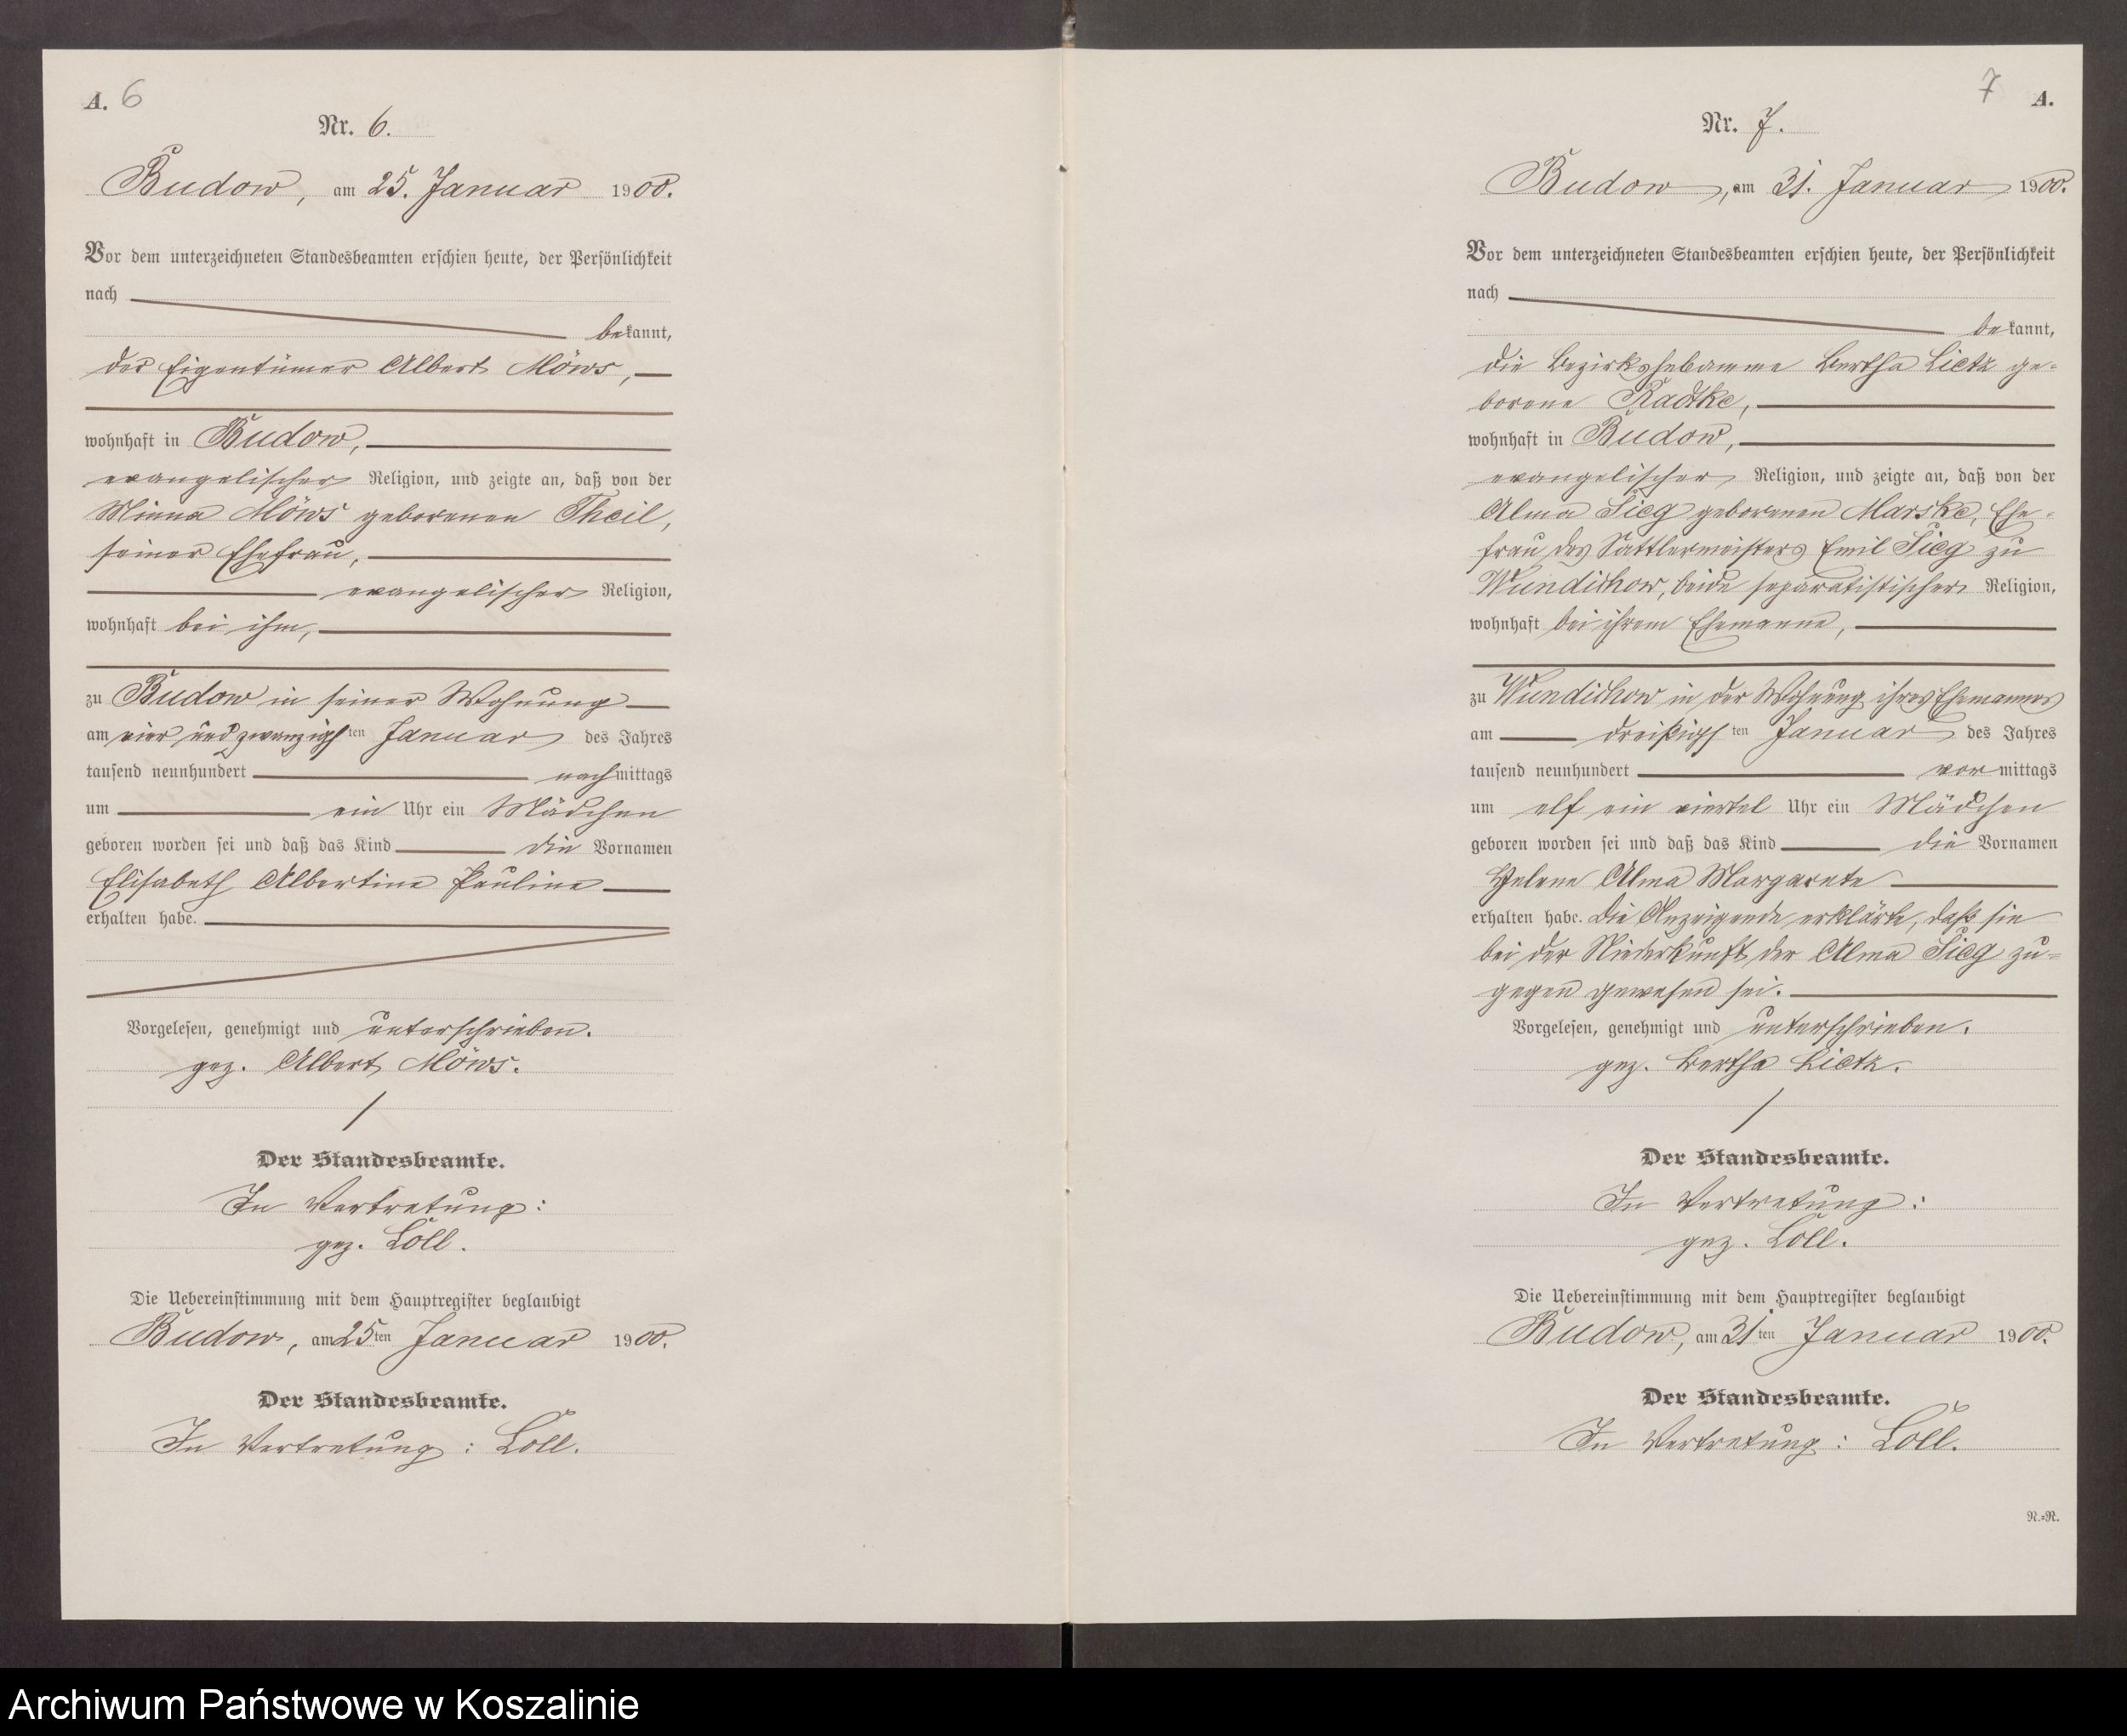 A. 6
Nr. 6.
Budow, am 25. Januar 1900.
Vor dem unterzeichneten Standesbeamten erschien heute, der Persönlichkeit
nach
bekannt,
der Eigentümer Albert Möws,
wohnhaft in Budow,
evangelischer Religion, und zeigte an, daß von der
Minna Möws geborenen Theil,
seiner Ehefrau,
evangelischer Religion,
wohnhaft bei ihm,
zu Budow in seiner Wohnung
am vier und zwanzigsten Januar des Jahres
tausend neunhundert nachmittags
um ein Uhr ein Mädchen
geboren worden sei und daß das Kind die Vornamen
Elisabeth Albertine Pauline
erhalten habe.
Vorgelesen, genehmigt und unterschrieben.
gez. Albert Möws.
Der Standesbeamte.
In Vertretung:
gez. Löll.
Die Uebereinstimmung mit dem Hauptregister beglaubigt
Budow, am 25ten Januar 1900.
Der Standesbeamte.
In Vertretung: Löll.
7 A.
Nr. 7.
Budow, am 31. Januar 1900.
Vor dem unterzeichneten Standesbeamten erschien heute, der Persönlichkeit
nach
bekannt,
die Bezirkshebamme Bertha Lietz ge-
borene Radtke,
wohnhaft in Budow,
evangelischer Religion, und zeigte an, daß von der
Alma Sieg geborenen Marske, Ehe-
frau des Sattlermeisters Emil Sieg zu
Wundichow, beide separatistischer Religion,
wohnhaft bei ihrem Ehemanne,
zu Wundichow in der Wohnung ihres Ehemannes
am dreißigsten Januar des Jahres
tausend neunhundert vormittags
um elf ein viertel Uhr ein Mädchen
geboren worden sei und daß das Kind die Vornamen
Helene Alma Margarete
erhalten habe. Die Anzeigende erklärte, daß sie
bei der Niederkunft der Alma Sieg zu-
gegen gewesen sei.
Vorgelesen, genehmigt und unterschrieben.
gez. Bertha Lietz.
Der Standesbeamte.
In Vertretung:
gez. Löll.
Die Uebereinstimmung mit dem Hauptregister beglaubigt
Budow, am 31ten Januar 1900.
Der Standesbeamte.
In Vertretung: Löll.
N.=R.
Archiwum Państwowe w Koszalinie